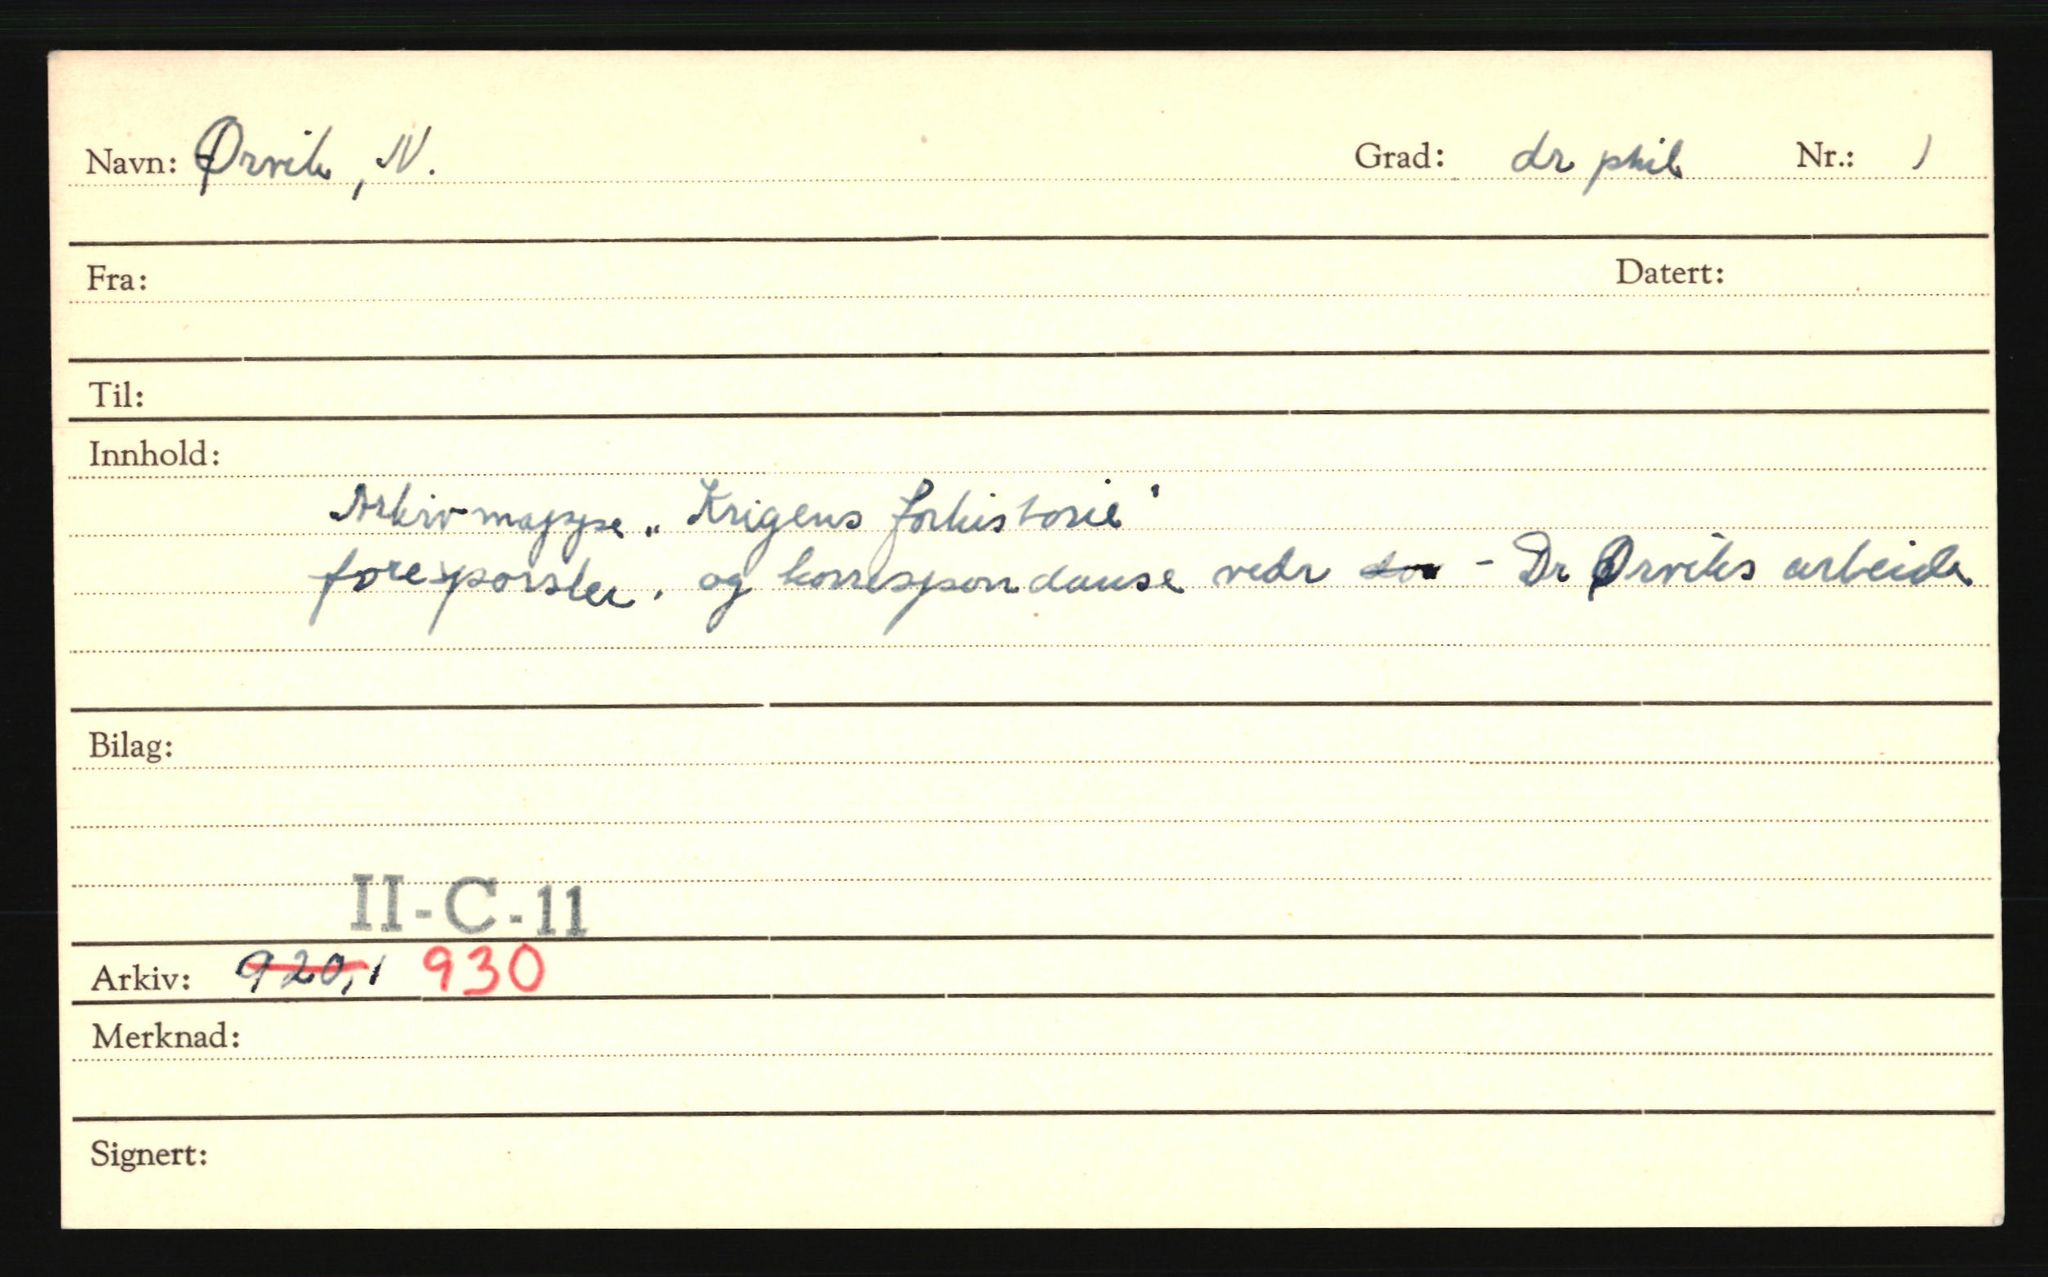 Navn: Ørvik, N. Grad: dr phil Nr.: 1
Fra: Datert:
Til:
Innhold:
Arkivmappe „Krigens forhistorie"
forespørsler. og korrespondanse vedr - Dr Ørviks arbeide
Bilag:
II-C-11
Arkiv: 920,1 930
Merknad:
Signert: